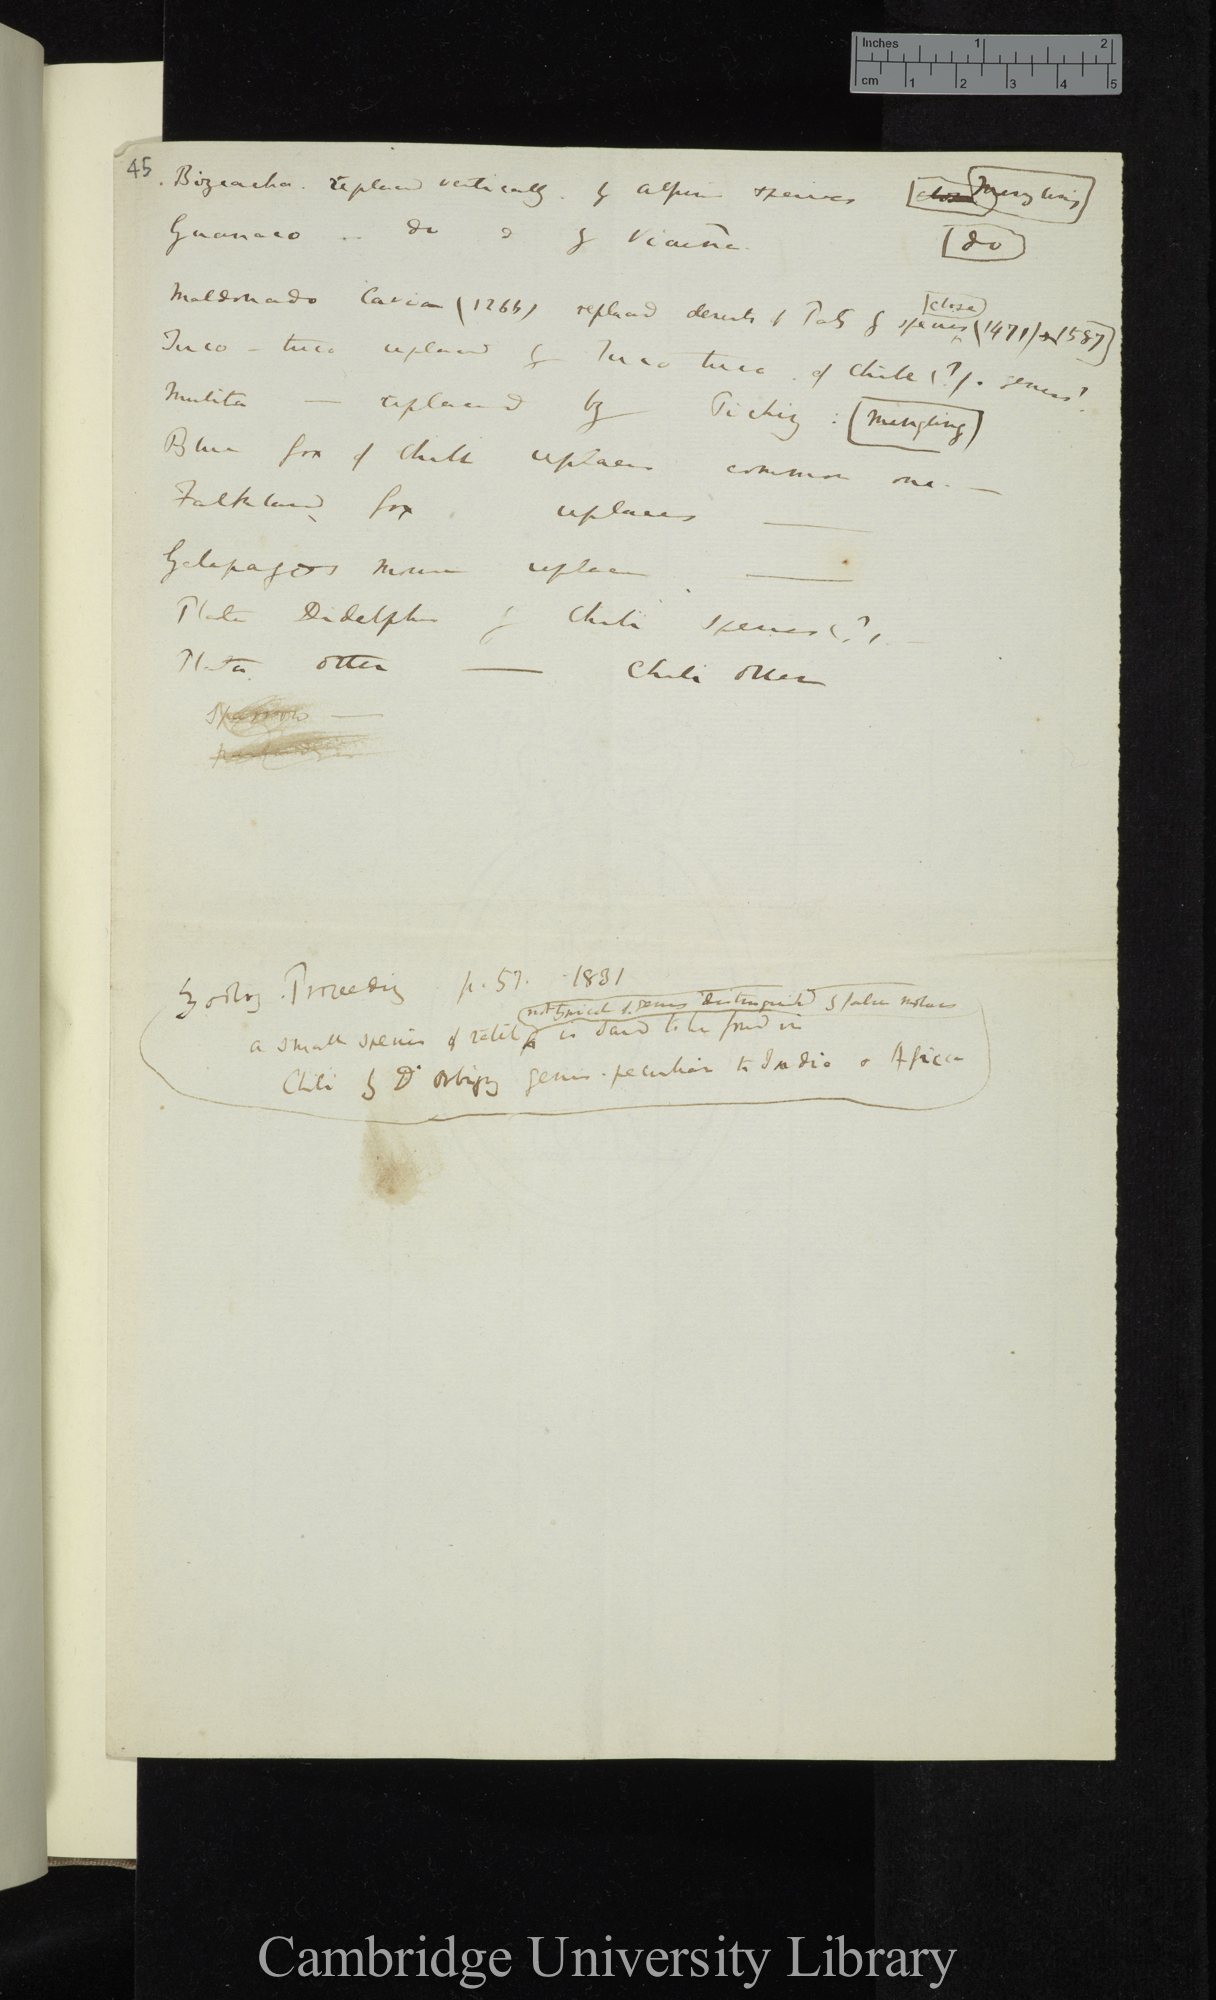 Inches 1 2
cm 1 2 3 4 5
45
Bizcacha. replaced vertically. by alpine species [close] [mingling]
Guanaco .. do do by Vicuña. [do]
[close]
Maldonado Cavia (1266) replaced deserts of Pat. by species (1471) & (1587)
Tuco-tuco replaced by Tuco tuco of Chile (?). genus?
Mulita — replaced by Pichiy: [mingling]
Blue fox of Chile replaces common one. —
Falkland fox replaces —
Galapagos mouse replaces —
Plata Didelphis by Chili species (?)
Plata otter — Chili otter
Sparrow —
Zoolog. Proceedings p. 57. 1831
genus distinguished by false molars
a small species of is said to be found in
Chili by D'Orbigny genus peculiar to India & Africa
Cambridge University Library